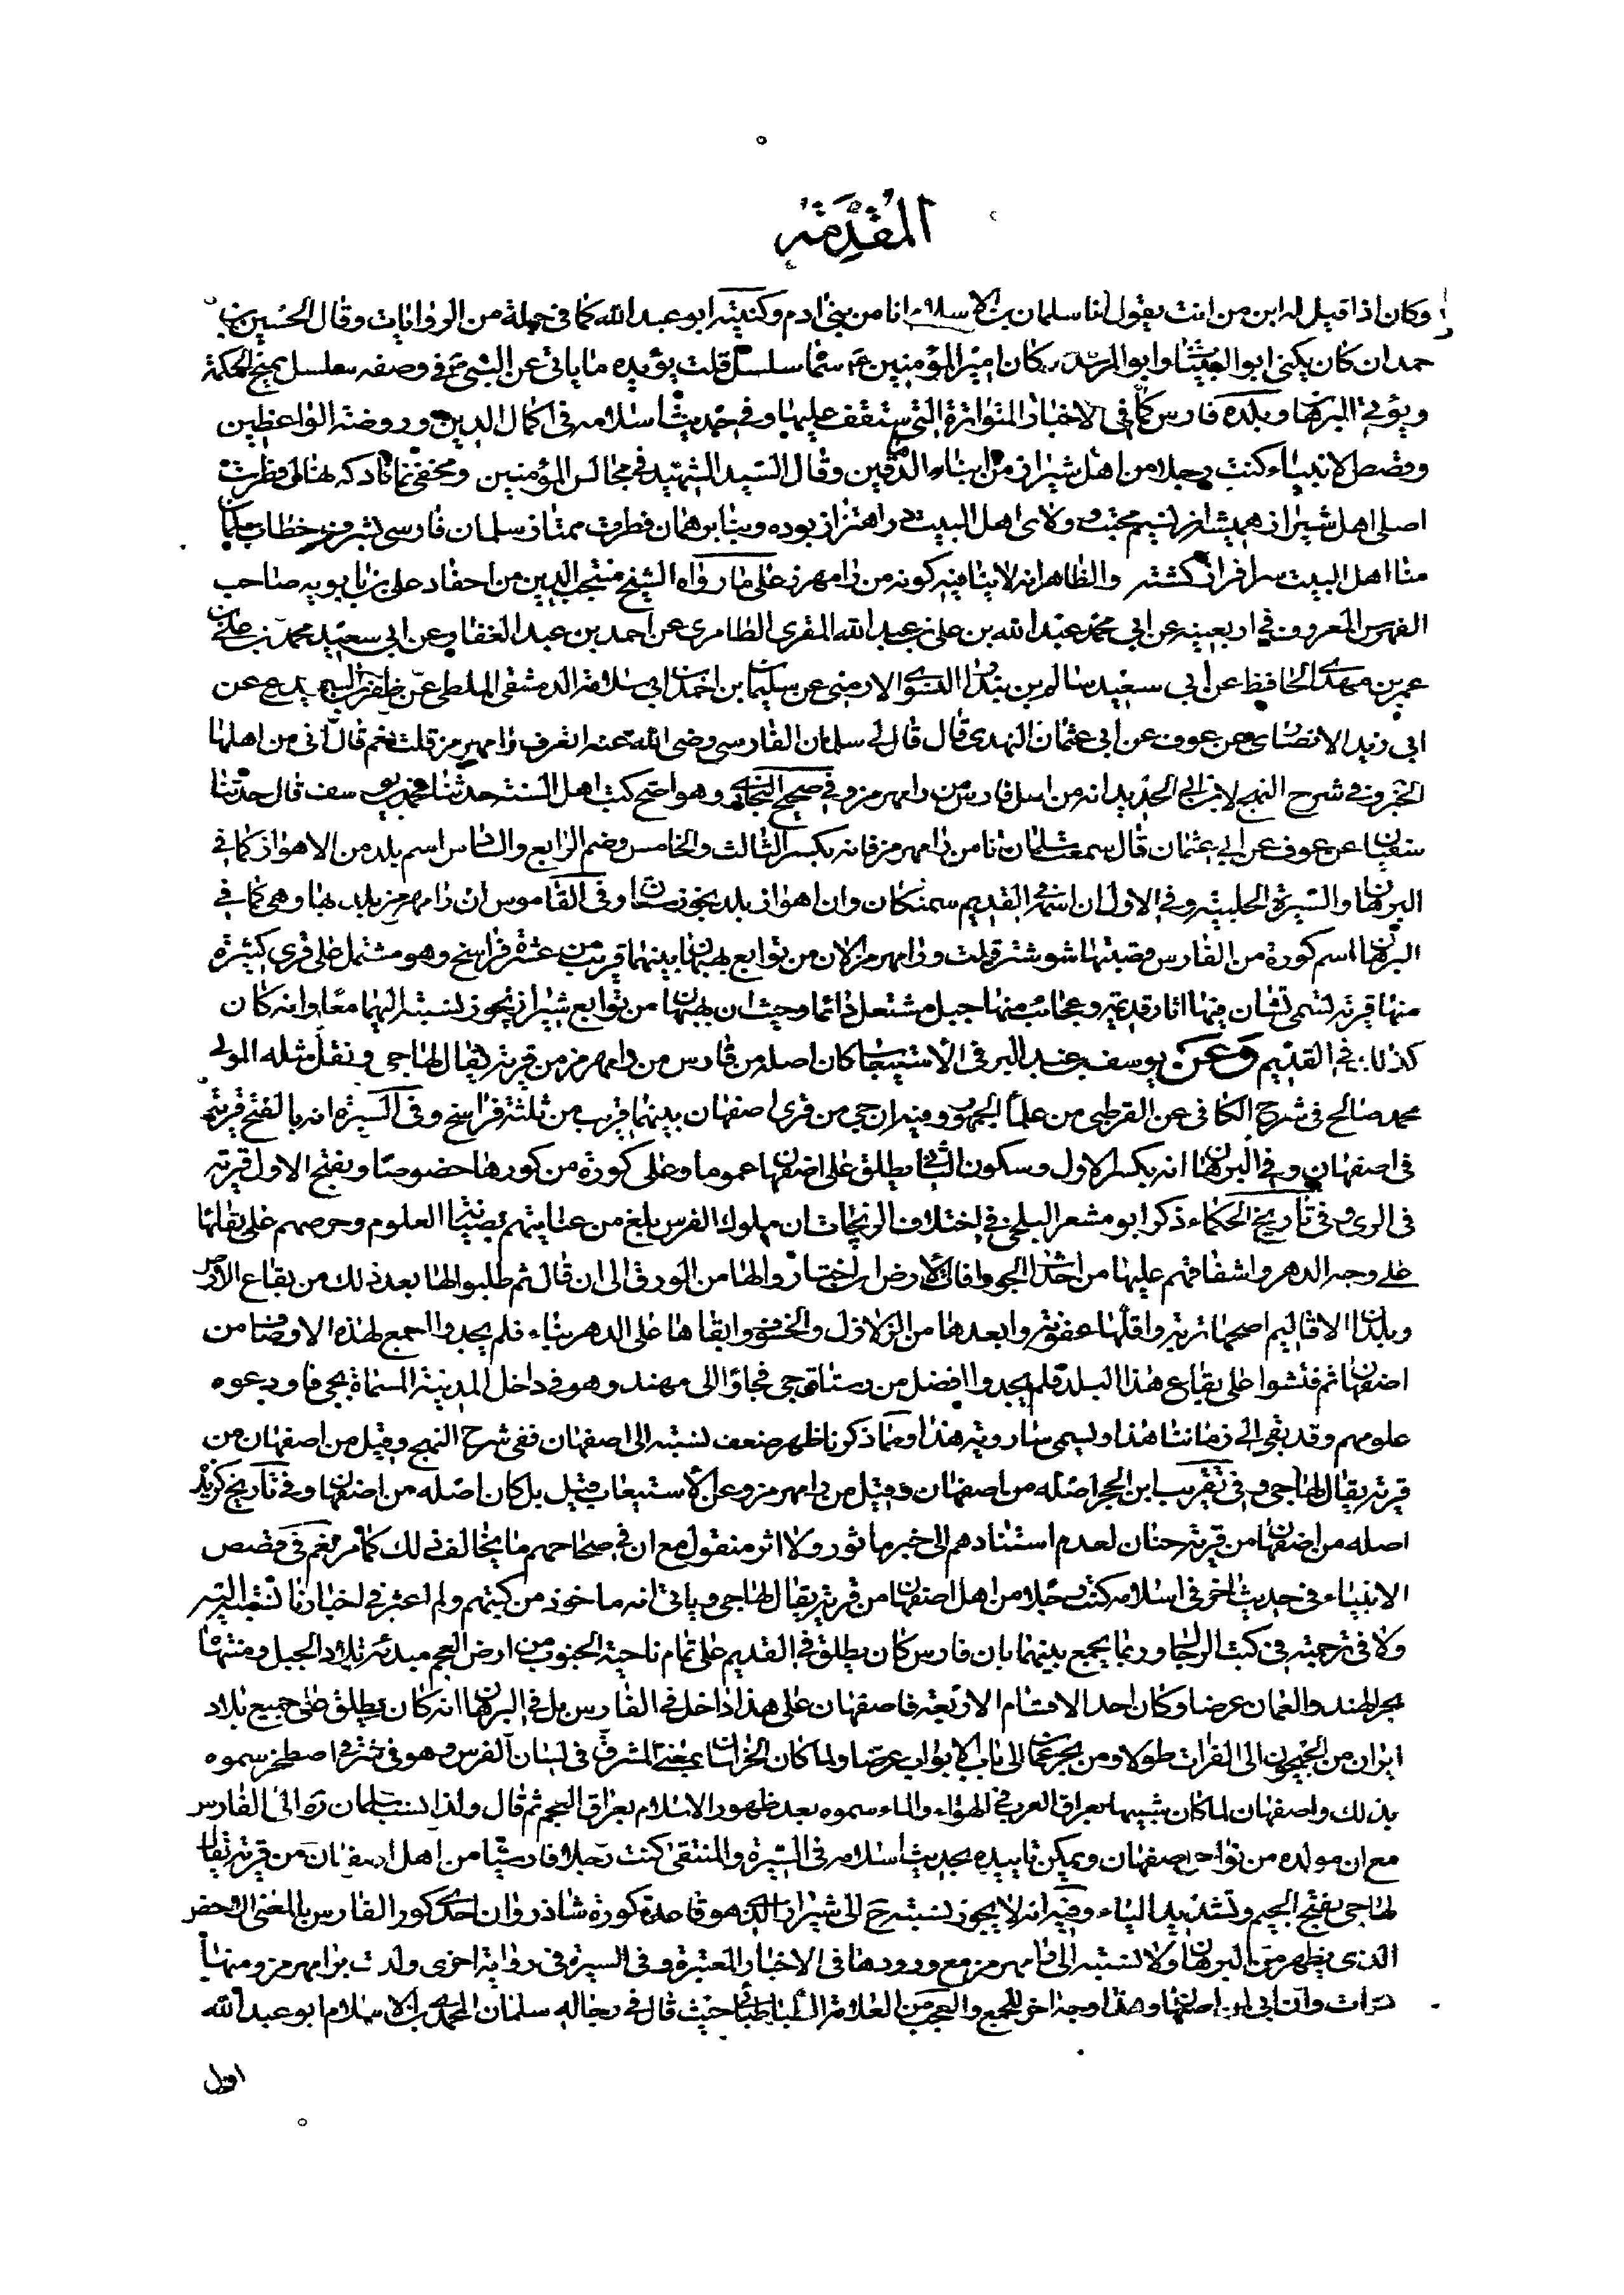 المقدمة
وكان اذا قيل له ابن من انت يقول انا سلمان بن الاسلام انا من بنى ادم وكنيته ابو عبد الله كما فى جملة من الروايات وقال الحسين بن
حمدان كان يكنى ابو البينات وابو المرشد وكان امير المؤمنين ع سماه سلسل قلت يؤيده ما ياتى عن النبى ص فى وصفه سلسل يمنح الحكمة
ويؤتى البرهان وبلده فارس كما فى الاخبار المتواترة التى ستقف عليها وفى حديث اسلامه فى اكمال الدين وروضة الواعظين
وقصص الانبياء كنت رجلا من اهل شيراز من ابناء الدهاقين وقال السيد الشهيد فى مجالس المؤمنين ومخفى نماناد كه نهال فطرت
اصلى اهل شيراز هميشه از نسيم محبت و ولاى اهل البيت در اهتزاز بوده وبنابر همان فطرت ممتاز سلمان فارسى بشرف خطاب سلمان
منا اهل البيت سرافراز گشته والظاهر انه لا ينافيه كونه من رامهرمز على ما رواه الشيخ منتجب الدين من احفاد على بن بابويه صاحب
الفهرس المعروف فى اربعينه عن ابى محمد عبد الله بن على بن عبد الله المقرى الطامرى عن احمد بن عبد الغفار عن ابى سعيد محمد بن على بن
عمر بن مهدى الحافظ عن ابى سعيد سالم بن بندار الارمنى عن سليمان بن احمد بن ابى سلامة الدمشقى الملطى عن ظفر بن السميدع عن
ابى زيد الانصارى عن عوف عن ابى عثمان النهدى قال قال لى سلمان الفارسى رضى الله عنه اتعرف رامهرمز قلت نعم قال انى من اهلها
الخبر وفى شرح النهج لابن ابى الحديد انه من اهل فارس من رامهرمز وفى صحيح البخارى وهو اصح كتب اهل السنة حدثنا محمد بن يوسف قال حدثنا
سفيان عن عوف عن ابى عثمان قال سمعت سلمان انا من رامهرمز فانه بكسر الثالث والخامس وضم الرابع والسادس اسم بلد من الاهواز كما فى
البرهان والسيرة الحلبية وفى الاول ان اسمه القديم سمنكان وان اهواز بلد بخوزستان وفى القاموس ان رامهرمز بلد بها وهى كما فى
البرهان اسم كورة من الفارس قصبتها شوشتر قلت ورامهرمز الان من توابع بهبهان بينهما قريب من عشرة فراسخ وهو مشتمل على قرى كثيرة
منها قرية تسمى تشان فيها اثار قديمة وعجائب منها جبل مشتعل دائما وحيث ان بهبهان من توابع شيراز يجوز نسبته اليهما معا وانه كان
كذلك فى القديم وعن يوسف بن عبد البر فى الاستيعاب كان اصله من فارس من رامهرمز من قرية يقال لها جى ونقل مثله المولى
محمد صالح فى شرح الكافى عن القرطبى من علماء الجمهور وفيه ان جى من قرى اصفهان بينهما قريب من ثلثة فراسخ وفى السيرة انه بالفتح قرية
فى اصفهان وفى البرهان انه بكسر الاول وسكون الثانى يطلق على اصفهان عموما وعلى كورة من كورها خصوصا وبفتح الاول قرية
فى الرى وفى تاريخ الحكماء ذكر ابو معشر البلخى فى اختلاف الزيجات ان ملوك الفرس بلغ من عنايتهم بصيانة العلوم وحرصهم على بقائها
على وجه الدهر واشفاقهم عليها من احداث الجو وافات الارض ان اختاروا لها من الورق الى ان قال ثم طلبوا لها بعد ذلك من بقاع الارض
وبلدان الاقاليم اصحها تربة واقلها عفونة وابعدها من الزلازل والخسوف وابقاها على الدهر بناء فلم يجدوا اجمع لهذه الاوصاف من
اصفهان ثم فتشوا على بقاع هذا البلد فلم يجدوا افضل من رستاق جى فجاؤا الى مهند وهو فى داخل المدينة المسماة بجى فاودعوه
علومهم وقد بقى الى زماننا هذا ويسمى سارويه هذا ومما ذكرنا ظهر ضعف نسبته الى اصفهان ففى شرح النهج وقيل من اصفهان من
قرية يقال لها جى وفى تقريب ابن الحجر اصله من اصفهان وقيل من رامهرمز وعن الاستيعاب قيل بل كان اصله من اصفهان وفى تاريخ گزيده
اصله من اصفهان من قرية حنان لعدم استنادهم الى خبر ماثور ولا اثر منقول مع ان فى صحاحهم ما يخالف ذلك كما مر نعم فى قصص
الانبياء فى حديث اخر فى اسلامه كنت رجلا من اهل اصفهان من قرية يقال لها جى وياتى انه ماخوذ من كتبهم ولم اعثر فى اخبارنا لنسبة اليه
ولا فى ترجمته فى كتب الرجال وربما يجمع بينهما بان فارس كان يطلق فى القديم على تمام ناحية الجنوب من ارض العجم مبدئه بلاد الجبل ومنتهاها
بحر الهند والعمان عرضا وكان احد الاقسام الاربعة فاصفهان على هذا داخل فى الفارس بل فى البرهان انه كان يطلق على جميع بلاد
ايران من الجيحون الى الفرات طولا ومن بحر عمان الى باب الابواب عرضا ولما كان الخراسان بمعنى المشرق فى لسان الفرس وهو فى شرقى اصطخر سموه
بذلك واصفهان لما كان شبيها بعراق العرب فى الهواء والماء سموه بعد ظهور الاسلام بعراق العجم ثم قال ولذا نسب سلمان ره الى الفارس
مع ان مولده من نواحى اصفهان ويمكن تاييده بحديث اسلامه فى السيرة والمنتقى كنت رجلا فارسيا من اهل اصفهان من قرية يقال
لها جى بفتح الجيم وتشديد الياء وفيه انه لا يجوز نسبته ح الى شيراز الذى هو قاعدة كورة شاذروان احد كور الفارس بالمعنى الاخص
الذى يظهر من البرهان ولا نسبته الى رامهرمز مع ورودها فى الاخبار المعتبرة وفى السيرة فى رواية اخرى ولدت برامهرمز ومنها
وان ابى من اصفهان وهذا وجه اخر للجمع والعجب من العلامة الطباطبائى حيث قال فى رجاله سلمان المحمدى بن الاسلام ابو عبد الله
اول